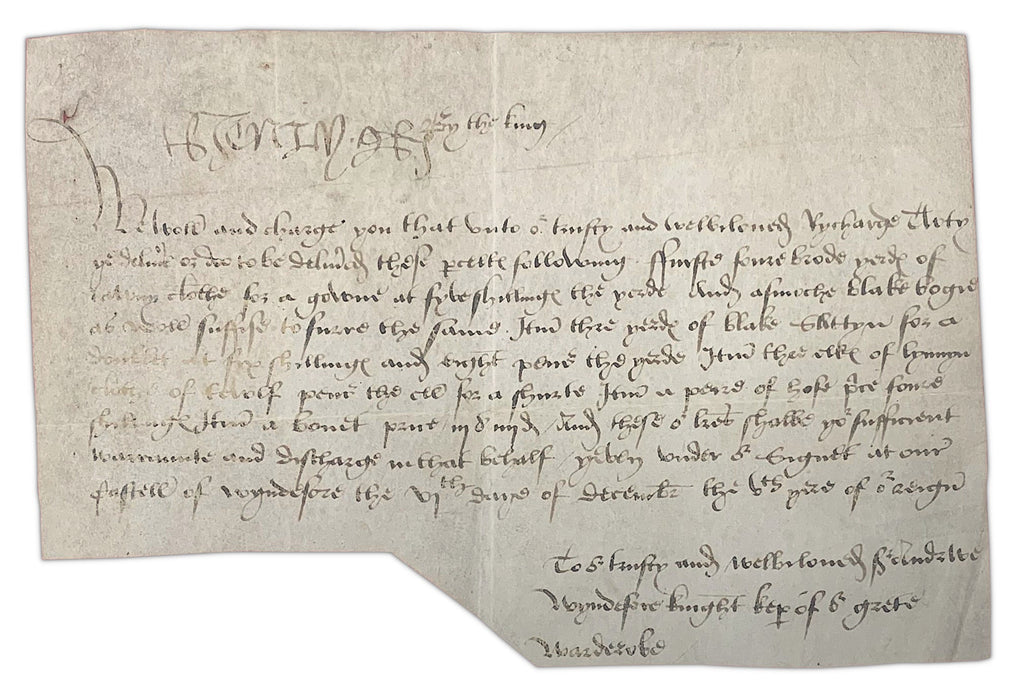 HENRY R By the king
We woll and charge you that unto oʳ trusty and welbiloved Rycharde
ye delivʳ or doo to be delivʳed these pcelles following. Ffurste foure brode yerdes of
tawny clothe for a gowne at fyve shillinges the yerde And asmoche blake bogie
as woll suffise to furre the same. Itm thre yerdes of blake Sattyn for a
doublet at syx shillinges and eight pence the yerde Itm thre elles of lynnyn
clothe of twolf pence the ell for a shurte Itm a peire of hose price foure
shillinges Itm a bonet price iijs iiijd And these oʳ lres shalbe yoʳ sufficient
warraunte and discharge in that behalf yeven under oʳ Signet at our
Castell of Wyndesore the viᵗʰ daye of decembr the vᵗʰ yere of oʳ reign
To oʳ trusty and welbiloved Sʳ Andrewe
Wyndesore knight kepʳ of oʳ grete
Warderobe